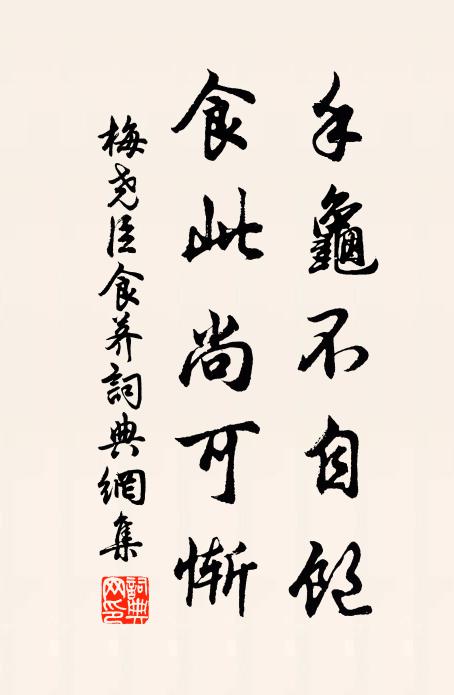 手龜不自飽
食此尚可慚
梅尧臣食荠詞典網集
詞典网印